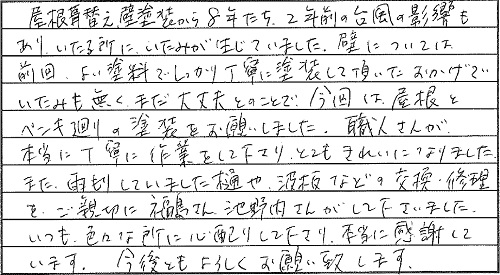 屋根葺替え壁塗装から8年たち、2年前の台風の影響も
あり、いたる所に、いたみが生じていました。壁については
前回、よい塗料でしっかり丁寧に塗装して頂いたおかげで
いたみも無く、まだ大丈夫とのことで、今回は、屋根と
ペンキ廻りの塗装をお願いしました。職人さんが
本当に丁寧に作業をして下さり、とてもきれいになりました。
また、雨もりしていました樋や、波板などの交換・修理
を、ご親切に福嶋さん、池野内さんがして下さいました。
いつも、色々な所に心配りして下さり、本当に感謝して
います。今後ともよろしくお願い致します。